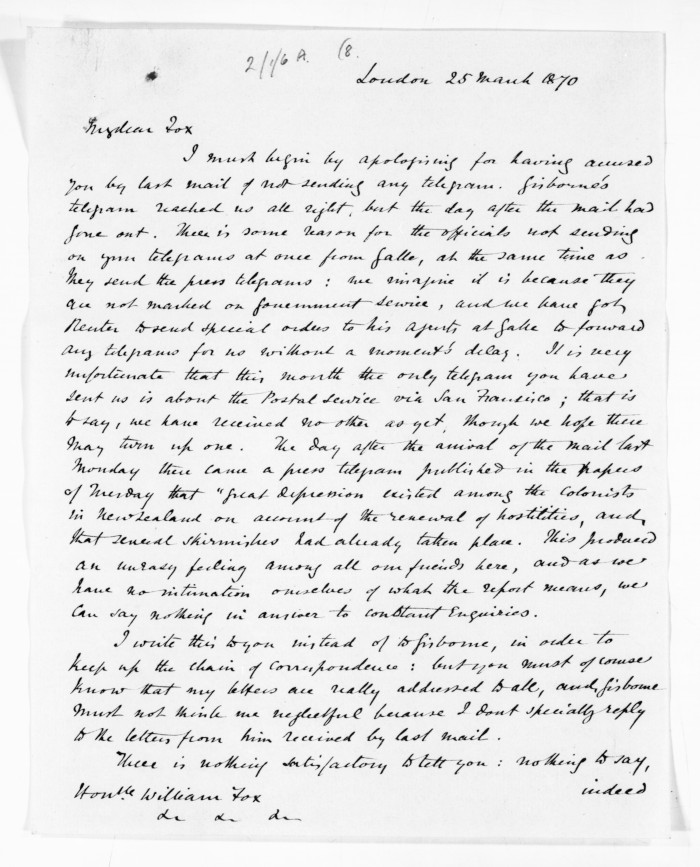 2/1/6 A. (8.
London 25 March 1870
My dear Fox
I must begin by apologising for having accused
you by last mail of not sending any telegram. Gisborne's
telegram reached us all right, but the day after the mail had
gone out. There is some reason for the officials not sending
on your telegrams at once from Galle, at the same time as
they send the press telegrams: we imagine it is because they
are not marked on Government Service, and we have got
Reuter to send special orders to his agents at Galle to forward
any telegrams for us without a moment's delay. It is very
unfortunate that this month the only telegram you have
sent us is about the Postal Service via San Francisco; that is
to say, we have received no other as yet, though we hope there
may turn up one. The day after the arrival of the mail last
Monday there came a press telegram published in the papers
of Tuesday that "great depression existed among the Colonists
in New Zealand on account of the renewal of hostilities, and
that several skirmishes had already taken place. This produced
an uneasy feeling among all our friends here, and as we
have no intimation ourselves of what the report means, we
can say nothing in answer to constant enquiries.
I write this to you instead of to Gisborne, in order to
keep up the chain of correspondence: but you must of course
know that my letters are really addressed to all, and Gisborne
must not think me neglectful because I dont specially reply
to the letters from him received by last mail.
There is nothing satisfactory to tell you: nothing to say,
indeed
Honble William Fox
&c &c &c